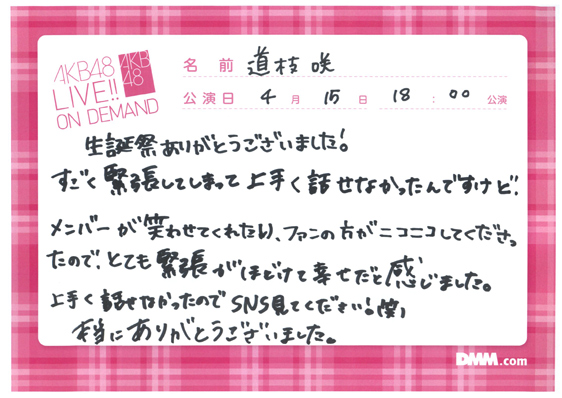 AKB48
LIVE!!
ON DEMAND
AKB
48
名前 道枝 咲
公演日 4月 15日 18:00 公演
生誕祭ありがとうございました!
すごく緊張してしまって上手く話せなかったんですけど、
メンバーが笑わせてくれたり、ファンの方がニコニコしてくださっ
たので、とても緊張がほどけて幸せだと感じました。
上手く話せなかったのでSNS見てください!(笑)
本当にありがとうございました。
DMM.com